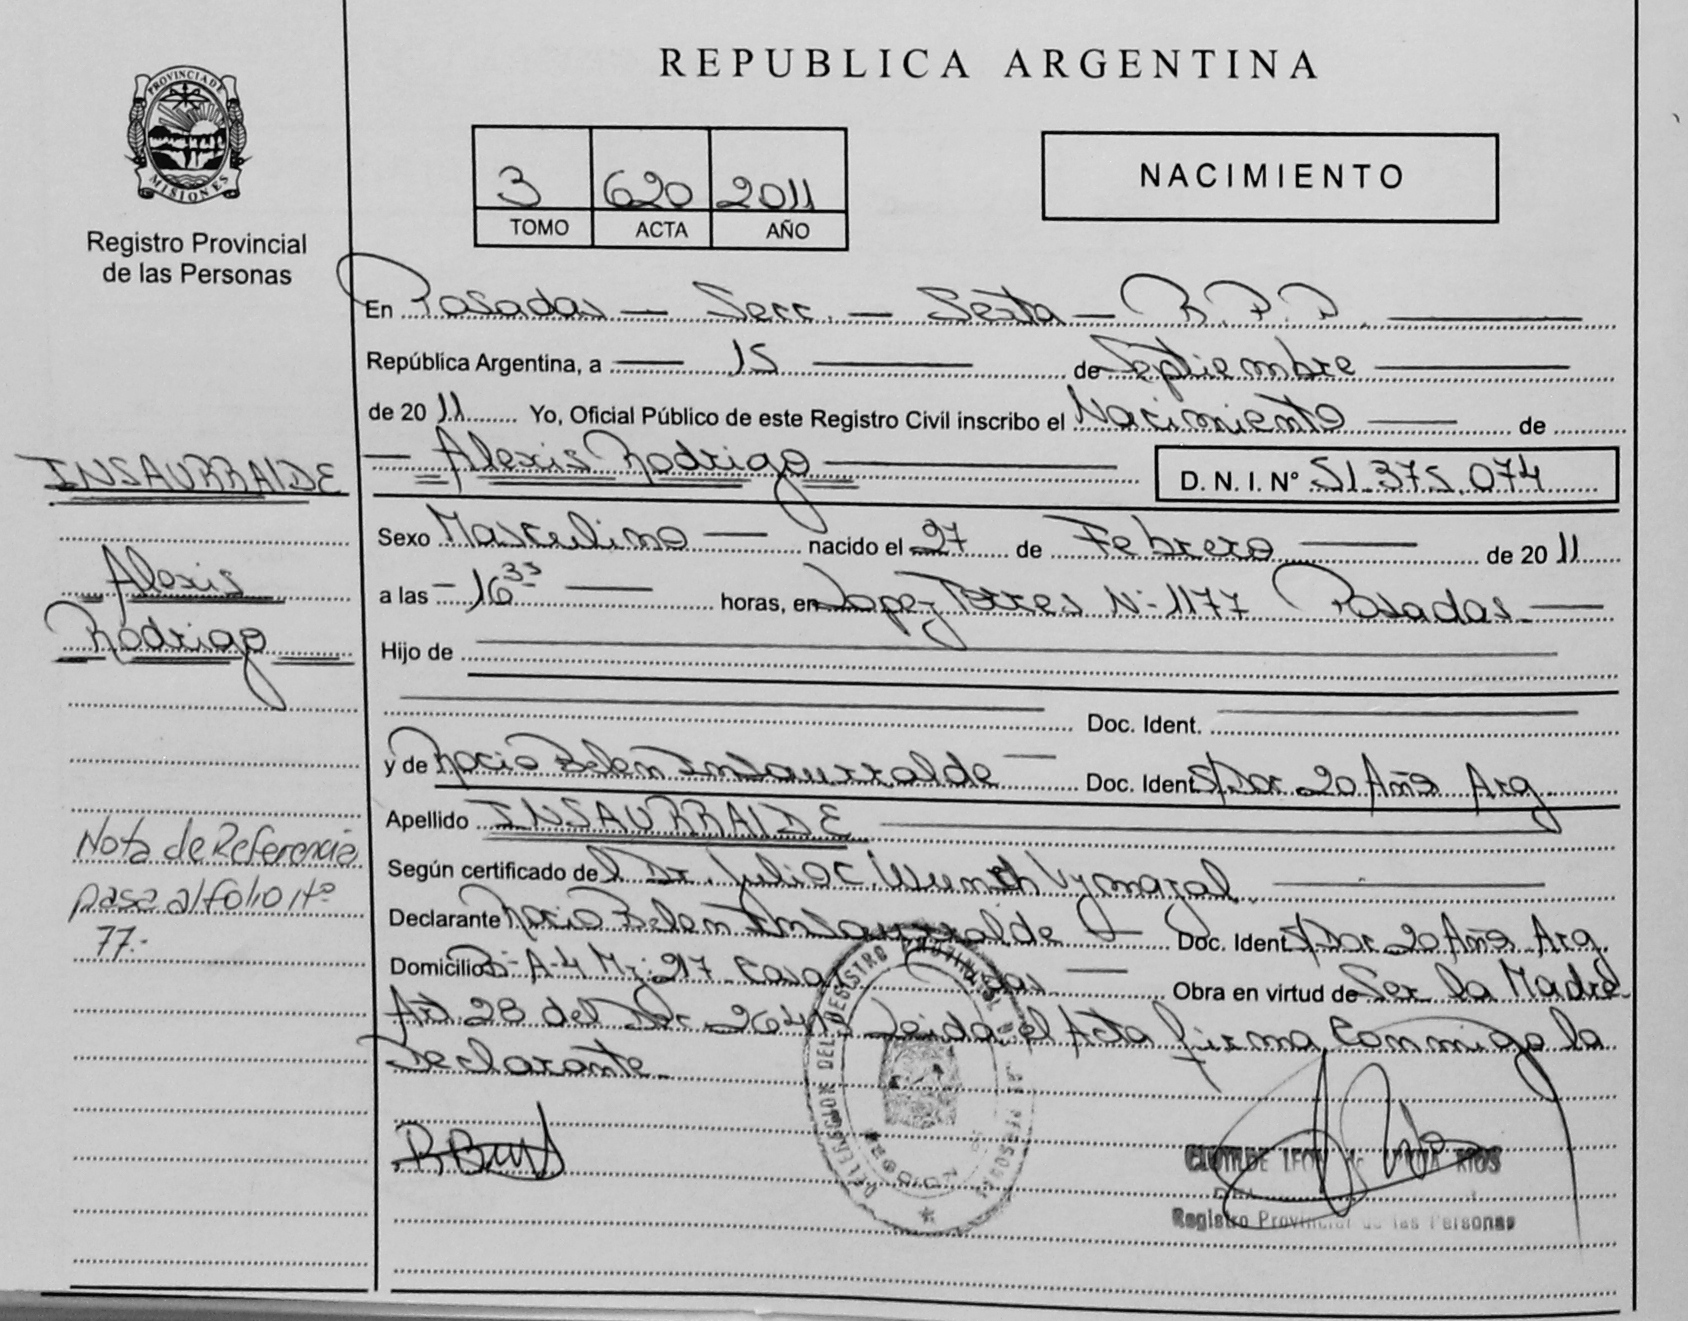 REPUBLICA ARGENTINA
PROVINCIA DE
MISIONES
Registro Provincial
de las Personas
3 620 2011
TOMO ACTA AÑO
NACIMIENTO
En Posadas — Secc. — Sexta — R.P.P.
República Argentina, a — 15 — de Septiembre
de 2011 Yo, Oficial Público de este Registro Civil inscribo el Nacimiento — de
— Alexis Rodrigo — D. N. I. Nº 51.375.074
INSAURRALDE
Alexis
Rodrigo
Sexo Masculino — nacido el 27 de Febrero — de 2011
a las — 16 33 — horas, en Lopez Torres Nº 1177 Posadas —
Hijo de
Doc. Ident.
y de Rocio Belen Insaurralde — Doc. Ident. S/Doc 20 Años Arg
Apellido INSAURRALDE
Nota de Referencia
pasa al folio Nº
77.-
Según certificado del Dr. Julio C.
Declarante Rocio Belen Insaurralde — Doc. Ident. S/Doc 20 Años Arg.
Domicilio Bº A-4 Mz: 217 Casa — Obra en virtud de Ser la Madre
Art 28 del Leida el Acta firma Conmigo la
Declarante
DELEGACION DEL REGISTRO PROVINCIAL DE LAS PERSONAS
CLOTILDE RIOS
Registro Provincial de las Personas